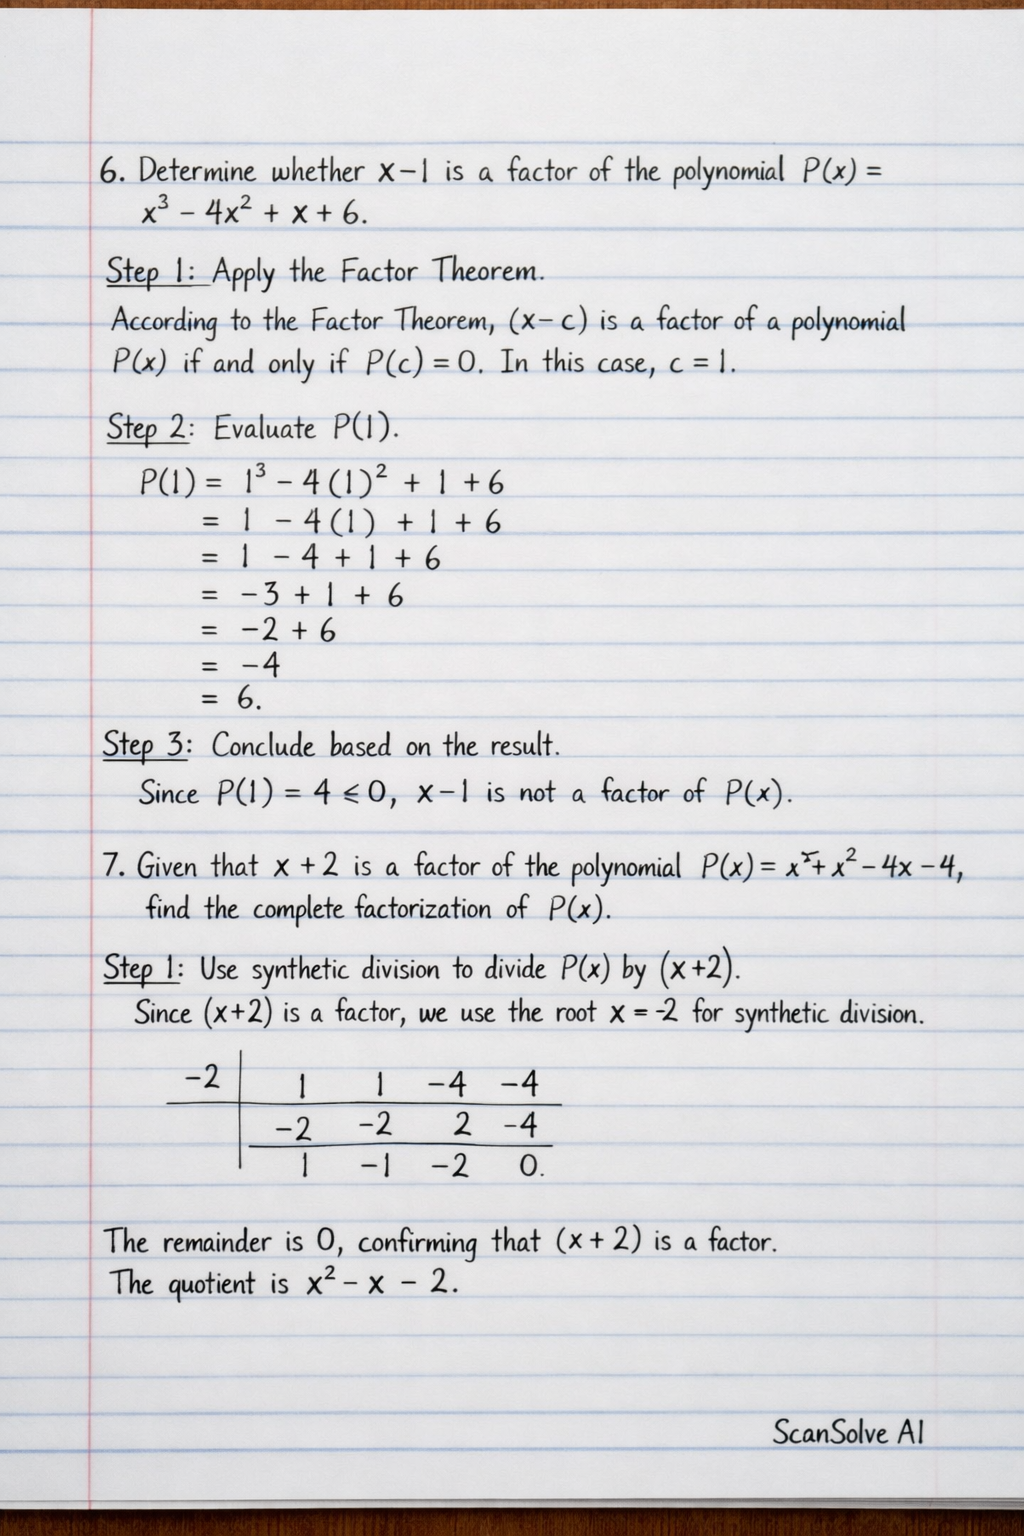 6. Determine whether x-1 is a factor of the polynomial P(x) =
x³ - 4x² + x + 6.
Step 1: Apply the Factor Theorem.
According to the Factor Theorem, (x-c) is a factor of a polynomial
P(x) if and only if P(c) = 0. In this case, c = 1.
Step 2: Evaluate P(1).
P(1) = 1³ - 4(1)² + 1 + 6
= 1 - 4(1) + 1 + 6
= 1 - 4 + 1 + 6
= -3 + 1 + 6
= -2 + 6
= -4
= 6.
Step 3: Conclude based on the result.
Since P(1) = 4 ⩽ 0, x-1 is not a factor of P(x).
7. Given that x + 2 is a factor of the polynomial P(x) = x + x² - 4x - 4,
find the complete factorization of P(x).
Step 1: Use synthetic division to divide P(x) by (x+2).
Since (x+2) is a factor, we use the root x = -2 for synthetic division.
-2 1 1 -4 -4
-2 -2 2 -4
1 -1 -2 0.
The remainder is 0, confirming that (x + 2) is a factor.
The quotient is x² - x - 2.
ScanSolve AI